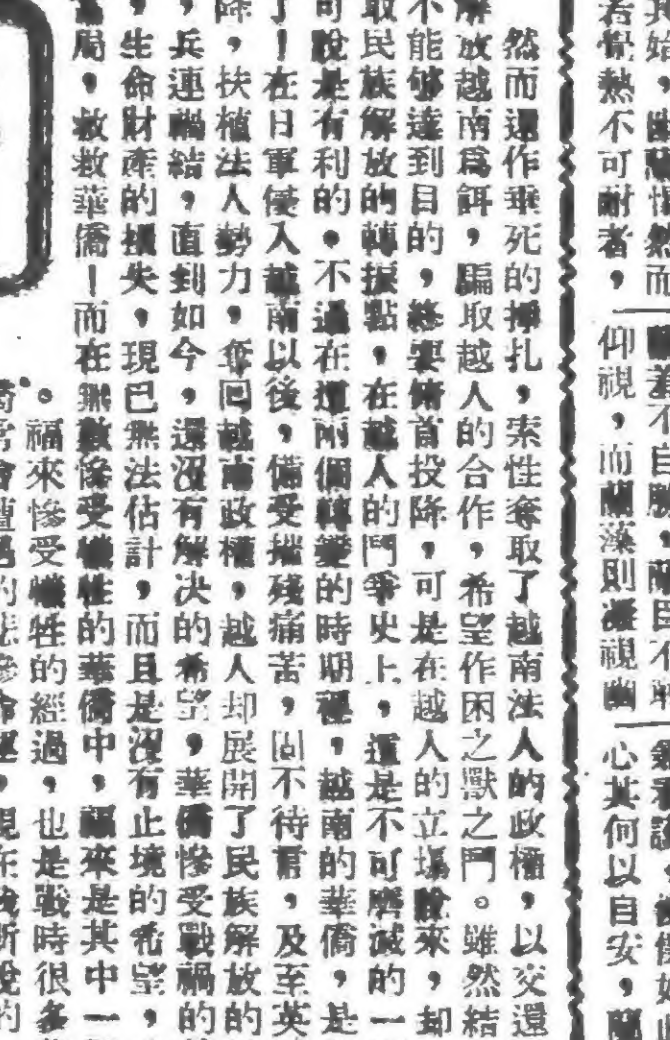 若覺熱不可耐者，
仰視，而蘭藻則凝視幽
心其何以自安，
然而還作垂死的掙扎，索性奪取了越南法人的政權，以交還
解放越南爲餌，騙取越人的合作，希望作困之獸之鬥。雖然結
不能够達到目的，終要俯首投降，可是在越人的立場說來，却
取民族解放的轉捩點，在越人的鬥爭史上，還是不可磨滅的一
可說是有利的。不過在這兩個轉變的時期裡，越南的華僑，是
了！在日軍侵入越南以後，備受摧殘痛苦，固不待言，及至英
降，扶植法人勢力，奪回越南政權，越人却展開了民族解放的
，兵連禍結，直到如今，還沒有解決的希望，華僑慘受戰禍的
，生命財產的損失，現已無法估計，而且是沒有止境的希望，
局，救救華僑！而在無數慘受犧牲的華僑中，福來是其中一
。福來慘受犧牲的經過，也是戰時很多